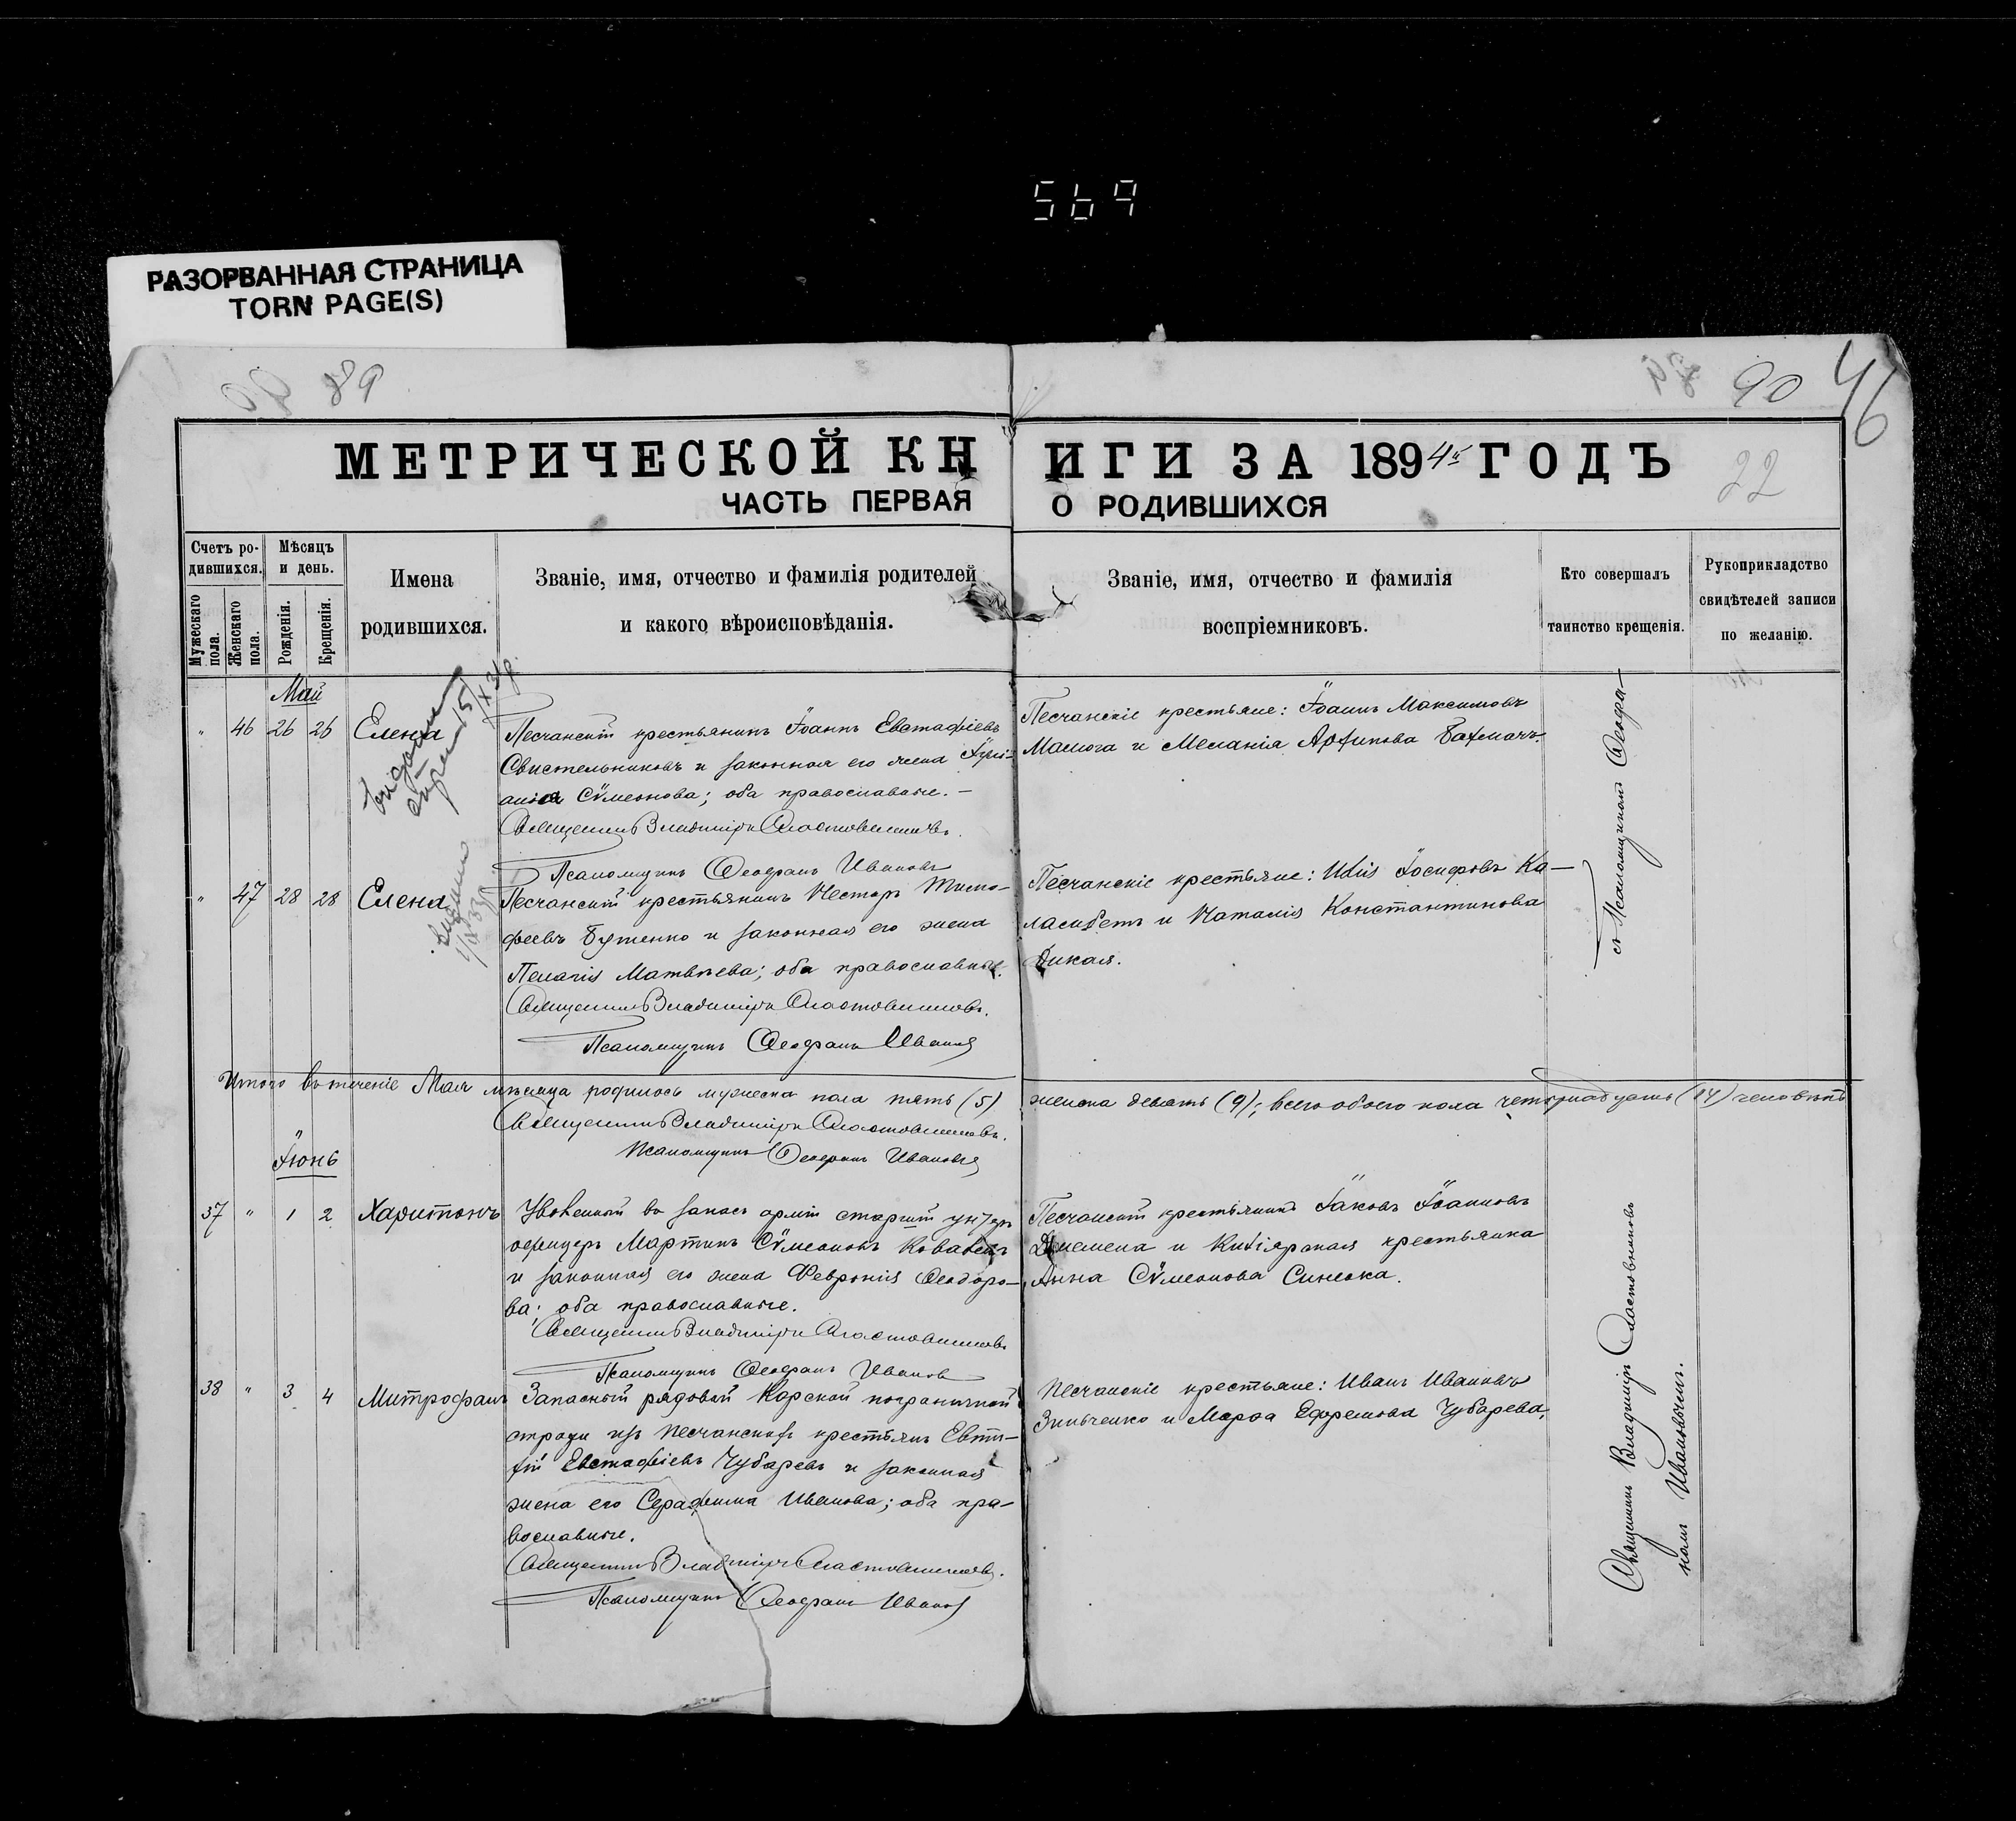 569
РАЗОРВАННАЯ СТРАНИЦА
TORN PAGE(S)
89
90
46
МЕТРИЧЕСКОЙ КНИГИ ЗА 1894й ГОДЪ
22
ЧАСТЬ ПЕРВАЯ О РОДИВШИХСЯ
Счетъ ро-
дившихся.
Мужескаго пола.
Женскаго пола.
Мѣсяцъ
и день.
Рожденія.
Крещенія.
Имена
родившихся.
Званіе, имя, отчество и фамилія родителей
и какого вѣроисповѣданія.
Званіе, имя, отчество и фамилія
воспріемниковъ.
Кто совершалъ
таинство крещенія.
Рукоприкладство
свидѣтелей записи
по желанію.
Май
" 46 26 26 Елена
Песчанскій крестьянинъ Іоаннъ Евстафіевъ
Свистельниковъ и законная его жена Іулі-
анія Сѵмеонова; оба православные. –
Священникъ Владиміръ Сластовниковъ.
Псаломщикъ Ѳеофанъ Ивановъ
Песчанскіе крестьяне: Іоаннъ Максимовъ
Малюга и Меланія Архипова Бахмачъ.
" 47 28 28 Елена
Песчанскій крестьянинъ Несторъ Тимо-
феевъ Бутенко и законная его жена
Пелагія Матвѣева; оба православные.
Священникъ Владиміръ Сластовниковъ.
Псаломщикъ Ѳеофанъ Ивановъ
Песчанскіе крестьяне: Илія Іосифовъ Ка-
и Наталія Константинова
Дикая.
съ Псаломщикомъ Ѳеофа-
Итого въ теченіе Мая мѣсяца родилось мужеска пола пять (5)
женска девять (9); всего обоего пола четырнадцать (14) человѣкъ
Священникъ Владиміръ Сластовниковъ.
Псаломщикъ Ѳеофанъ Ивановъ
Іюнь
37 " 1 2 Харитонъ
Уволенный въ запасъ арміи старшій унтеръ
офицеръ Мартинъ Сѵмеоновъ
и законная его жена Февронія Ѳеодоро-
ва; оба православные.
Священникъ Владиміръ Сластовниковъ
Псаломщикъ Ѳеофанъ Ивановъ
Песчанскій крестьянинъ Іаковъ Іоанновъ
и крестьянка
Анна Сѵмеонова
38 " 3 4 Митрофанъ
Запасный рядовой Карской пограничной
стражи изъ Песчанскихъ крестьянъ Евти-
хій Евстафіевъ Чубаревъ и законная
жена его Серафима Иванова; оба пра-
вославные.
Священникъ Владиміръ Сластовниковъ.
Псаломщикъ Ѳеофанъ Ивановъ
Песчанскіе крестьяне: Иванъ Ивановъ
Зинченко и Марѳа Ефремова Чубарева.
Священникъ Владиміръ Сластовниковъ
номъ Ивановымъ.